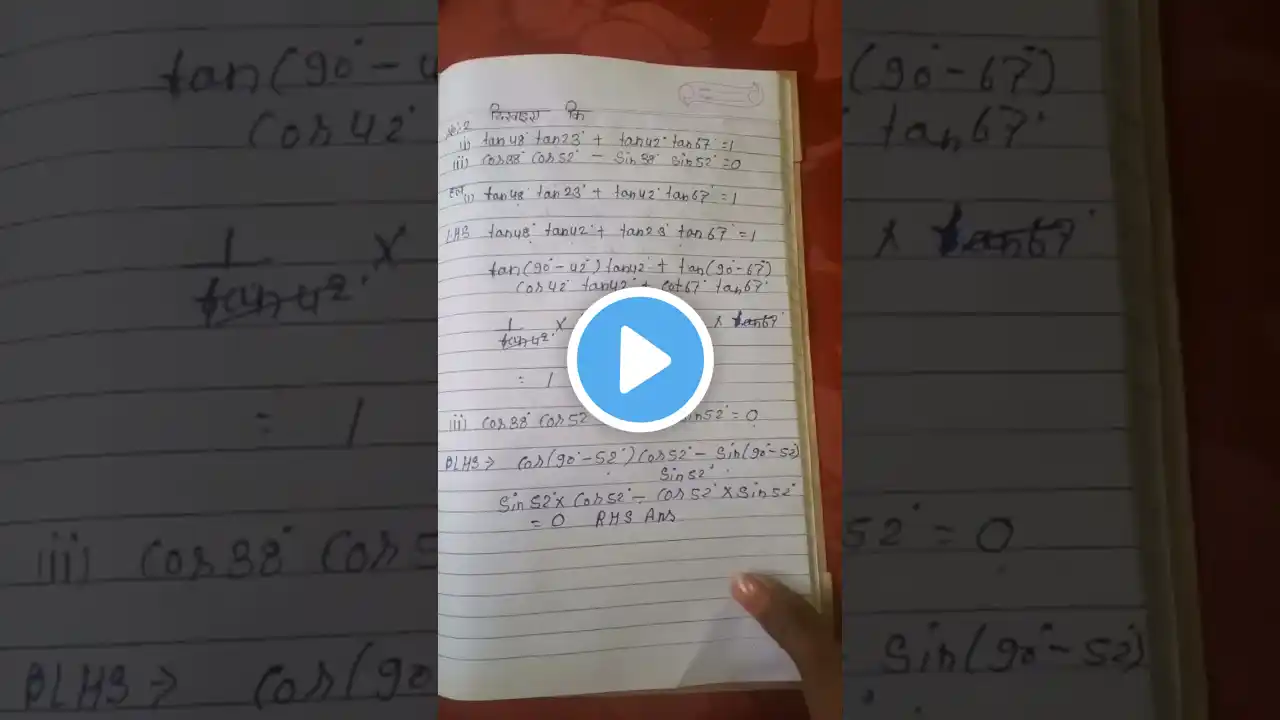 दिखाइए कि
i) tan48° tan23° + tan42° tan67° = 1
ii) cos38° cos52° - sin38° sin52° = 0
हल (i) tan48° tan23° + tan42° tan67° = 1
LHS tan48° tan42° + tan23° tan67° = 1
tan(90° - 42°) tan42° + tan(90° - 67°)
cos42° tan42° + cot67° tan67°
1/tan42° × × tan67°
= 1
ii) cos38° cos52° sin52° = 0
LHS ⇒ cos(90° - 52°) cos52° - sin(90° - 52)
sin52°
sin52° × cos52° - cos52° × sin52°
= 0 RHS Ans